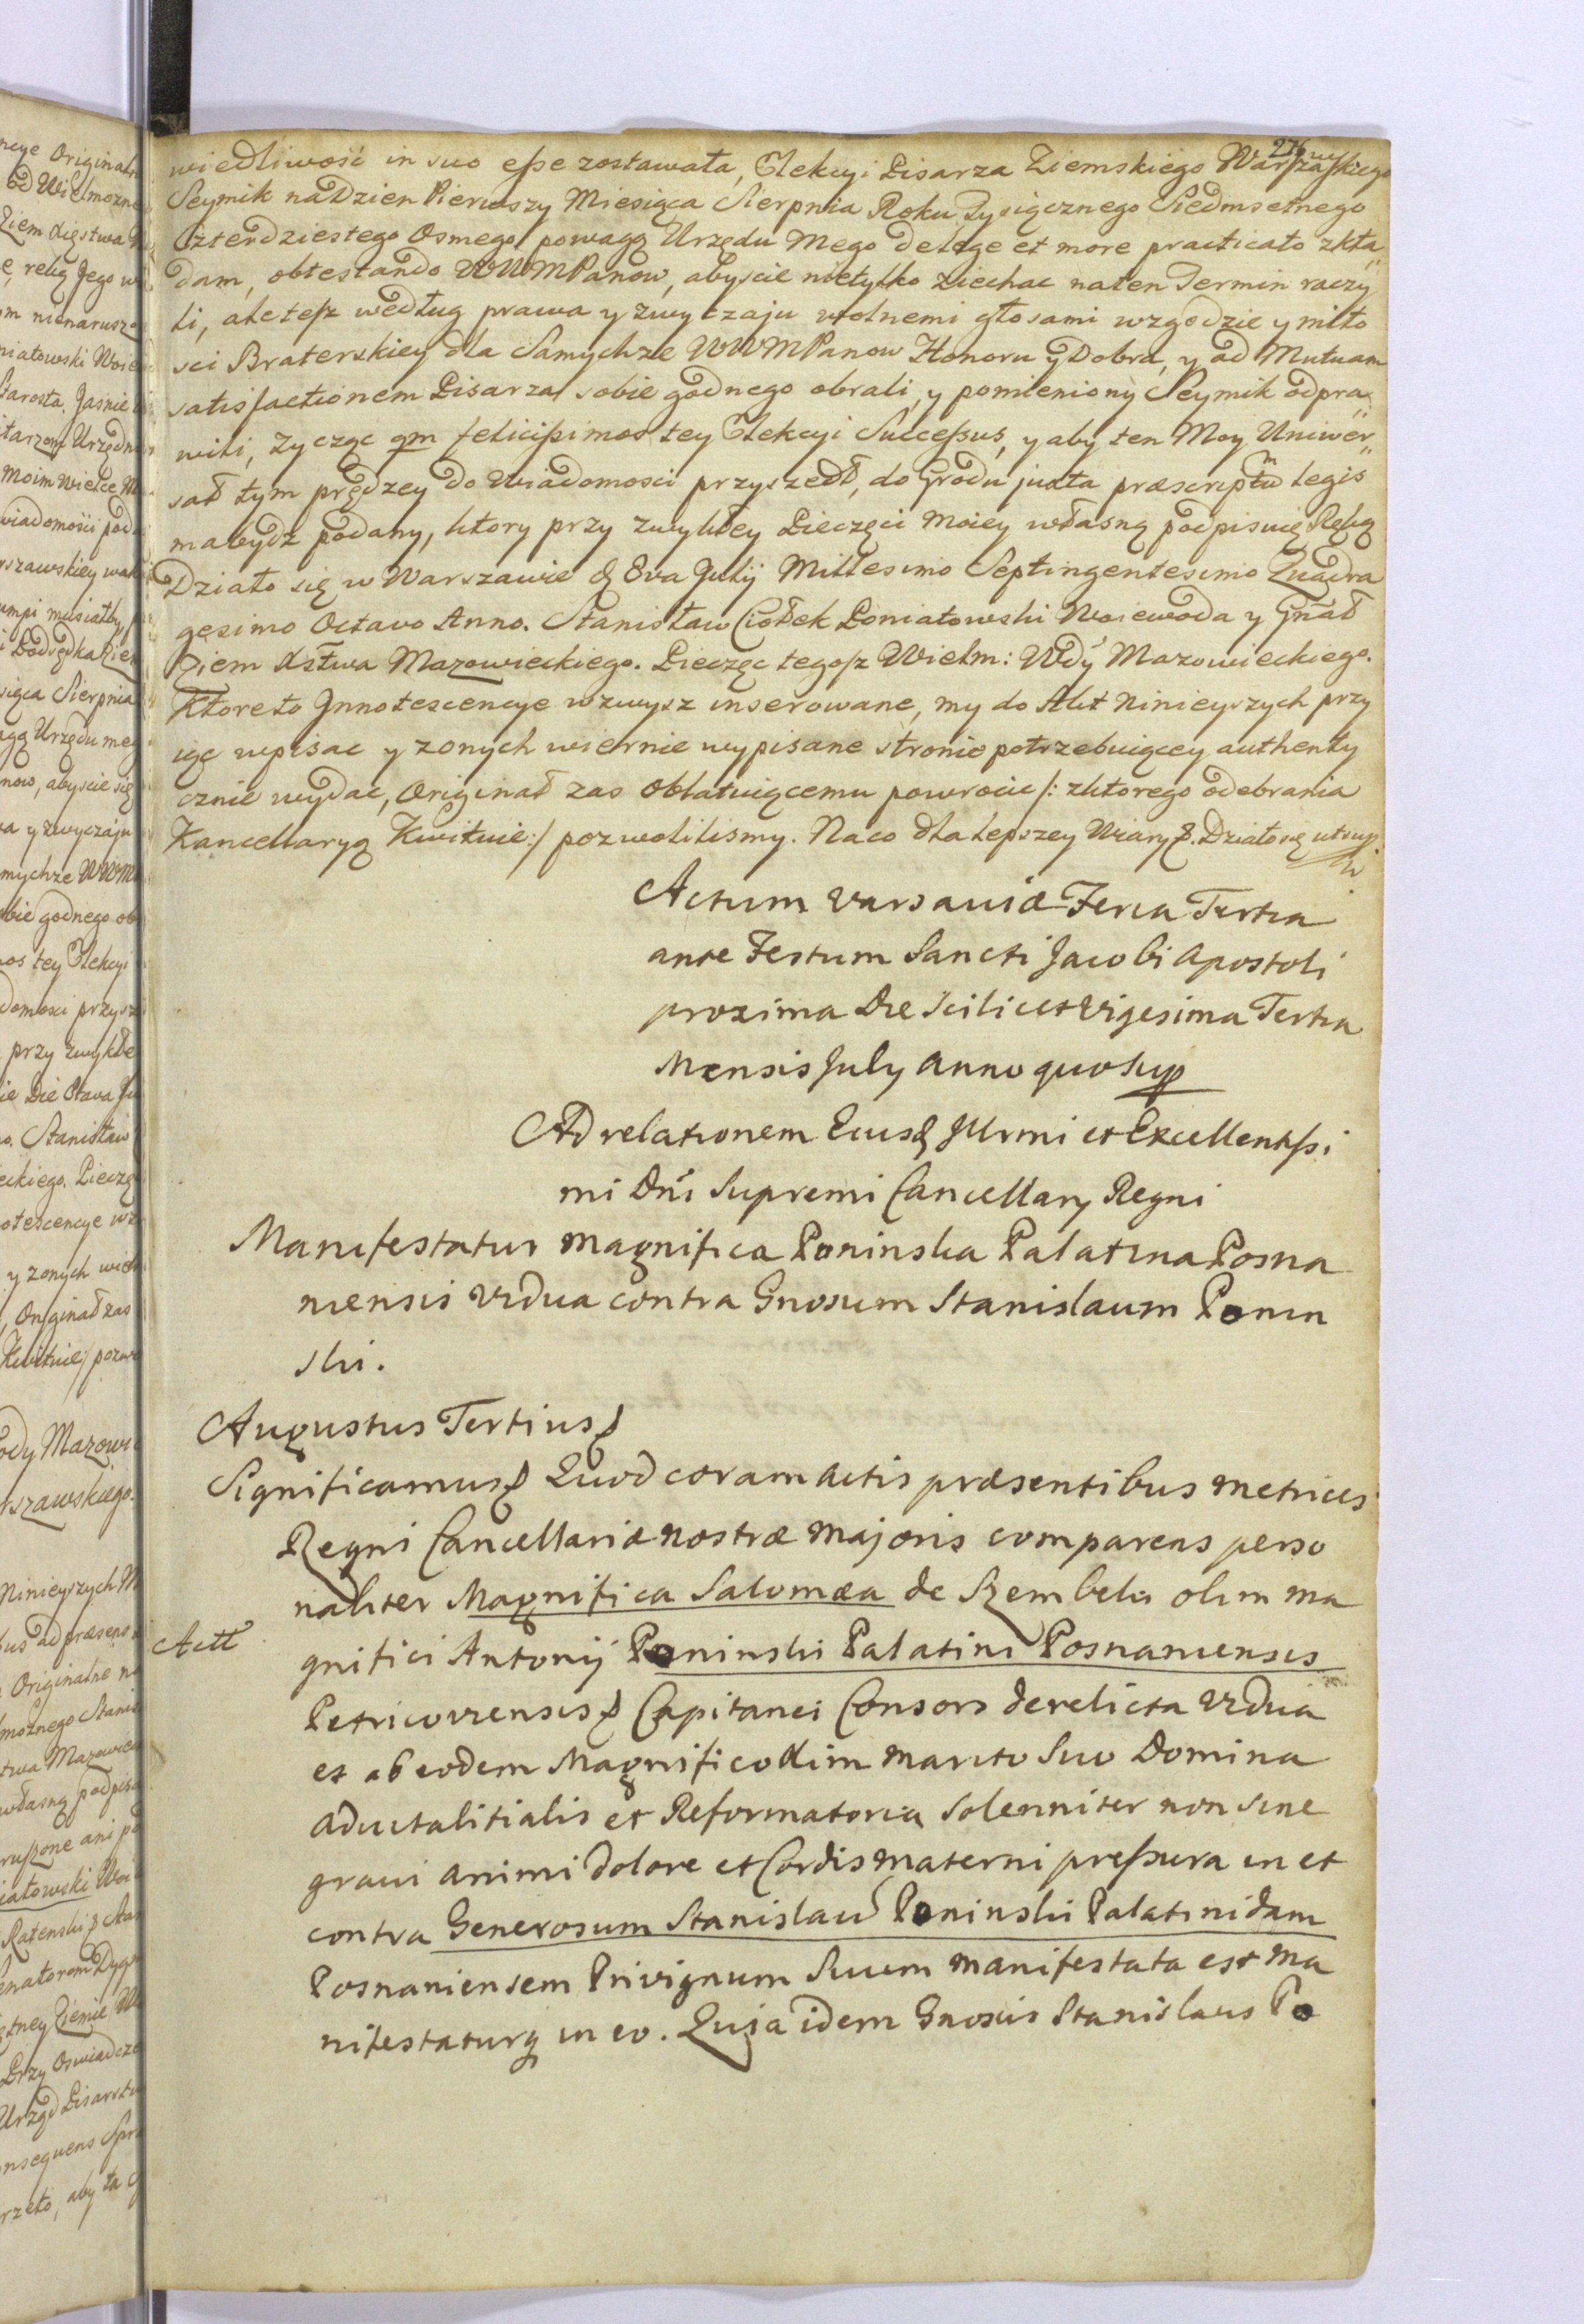 216
wiedliwość in suo eſse zostawała, Elekcyi Pisarza Ziemskiego Warſzawſkiego
Seymik na Dzien Pierwszy Miesiąca Sierpnia Roku Tysiącznego Siedmsetnego
Czterdziestego Osmego powagą Urzędu Mego de lege et more practicato zkła„
dam, obtestando WWMPanow, abyscie nietylko ziechac naten Termin raczy
li, ale teſz według prawa y zwyczaju wolnemi głosami wzgodzie y miło
sci Braterskiey dla Samychze WWMPanow Honoru y Dobra, y ad Mutuam
satisfactionem Pisarza sobie godnego obrali, y pomieniony Seymik odpra„
wili, zycząc qm feliciſsimos tey Elekcyi Succeſsus, y aby ten Moy Uniwer„
sał tym prędzey do wiadomosci przyszedł, do Grodu juxta præscriptũ legis
ma bydz podany, ktory przy zwykłey Pieczęci moiey własną podpisuię Ręką
Działo się w Warszawie d 8va Julij Millesimo Septingentesimo Quadra
gesimo Octavo Anno. Stanisław Ciołek Poniatowski Woiewoda y Gnãł
Ziem Xstwa Mazowieckiego. Pieczęc tegoſz Wielm: Wdy Mazowieckiego.
Ktore to Jnnotescencye wzwysz inserowane, my do Akt Ninieyszych przy
iąc wpisac y zonych wiernie wypisane stronie potrzebuiącey authenty
cznie wydac, Originał zas Oblatuiącemu powrocic /: zktorego odebrania
Kancellaryą Kwituie :/ pozwolilismy. Naco dla lepszey Wiary &. Działo się ut sup.
Actum Varsaviæ Feria Tertia
ante Festum Sancti Jacobi Apostoli
proxima Die scilicet Vigesima Tertia
Mensis July Anno quo Sup
Ad relationem Eiusd Jllrmi et Excellentiſsi
mi Dni Supremi Cancellary Regni
Manifestatur Magnifica Poninska Palatina Posna
niensis Vidua contra Gnosum Stanislaum Ponin
ski.
Augustus Tertius &
Significamus & Quod coram Actis præsentibus Metrices
Regni Cancellariæ nostræ Majoris comparens perso
naliter Magnifica Salomæa de Szembeki olim Ma
Actt
gnifici Antonij Poninski Palatini Posnaniensis
Petricoviensis & Capitanei Consors derelicta Vidua
et ab eodem Magnifico olim Marito Suo Domina
Advitalitialis et Reformatoria Solenniter non sine
gravi animi dolore et Cordis Materni preſsura in et
contra Generosum Stanislaũ Poninski Palatinidam
Posnaniensem Privignum Suum manifestata est Ma
nifestaturq in eo. Quia idem Gnosus Stanislaus Po